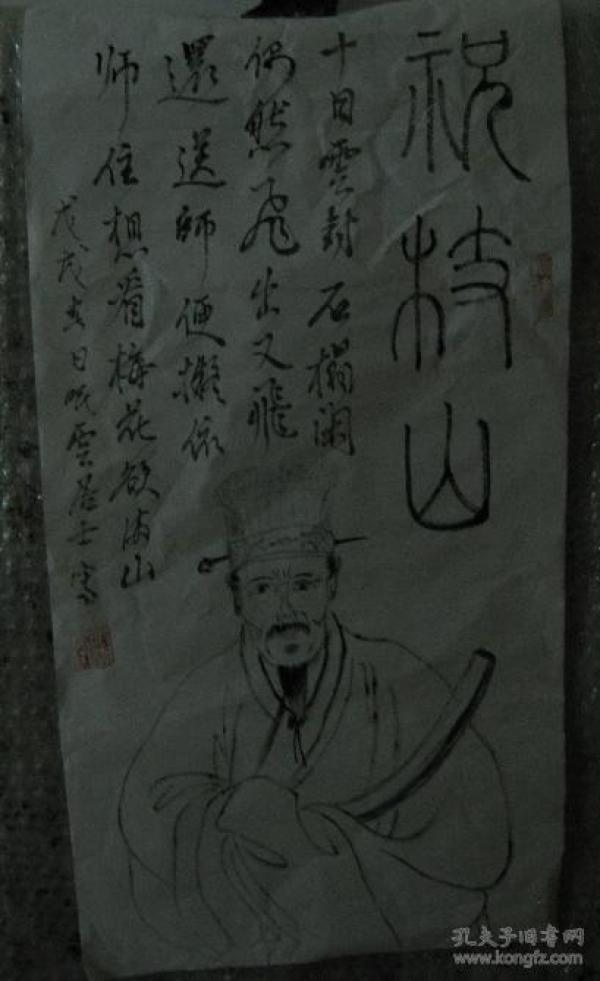 祝枝山
十日雲封石榻闲
偶然飞出又飛
還送師便擬依
师住想看梅花欲满山
戊戌春日吹雲居士写
孔夫子旧书网
www.kongfz.com